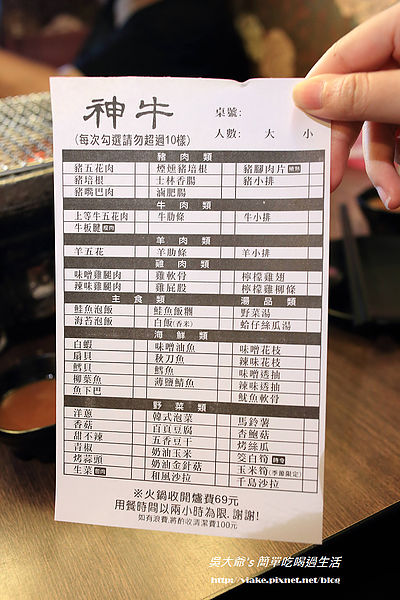 神牛
桌號:
(每次勾選請勿超過10樣)
人數: 大 小
豬 肉 類
豬五花肉 煙燻豬培根 豬腳肉片
豬培根 士林香腸 豬小排
豬嘴巴肉 滷肥腸
牛 肉 類
上等牛五花肉 牛肋條 牛小排
牛板腱
羊 肉 類
羊五花 羊肋條 羊小排
雞 肉 類
味噌雞腿肉 雞軟骨 檸檬雞翅
辣味雞腿肉 雞屁股 檸檬雞柳條
主 食 類 湯 品 類
鮭魚泡飯 鮭魚飯糰 野菜湯
海苔泡飯 白飯(香米) 蛤仔絲瓜湯
海 鮮 類
白蝦 味噌油魚 味噌花枝
扇貝 秋刀魚 辣味花枝
鱈貝 鱈魚 味噌透抽
柳葉魚 薄鹽鯖魚 辣味透抽
魚下巴 魷魚軟骨
野 菜 類
洋蔥 韓式泡菜 馬鈴薯
香菇 百頁豆腐 杏鮑菇
甜不辣 五香豆干 烤絲瓜
青椒 奶油玉米 筊白筍
烤蒜頭 奶油金針菇 玉米筍(季節限定)
生菜 和風沙拉 千島沙拉
※火鍋收開爐費69元
用餐時間以兩小時為限.謝謝!
如有浪費,將酌收清潔費100元
吳大爺's 簡單吃喝過生活
http://viake.pixnet.net/blog